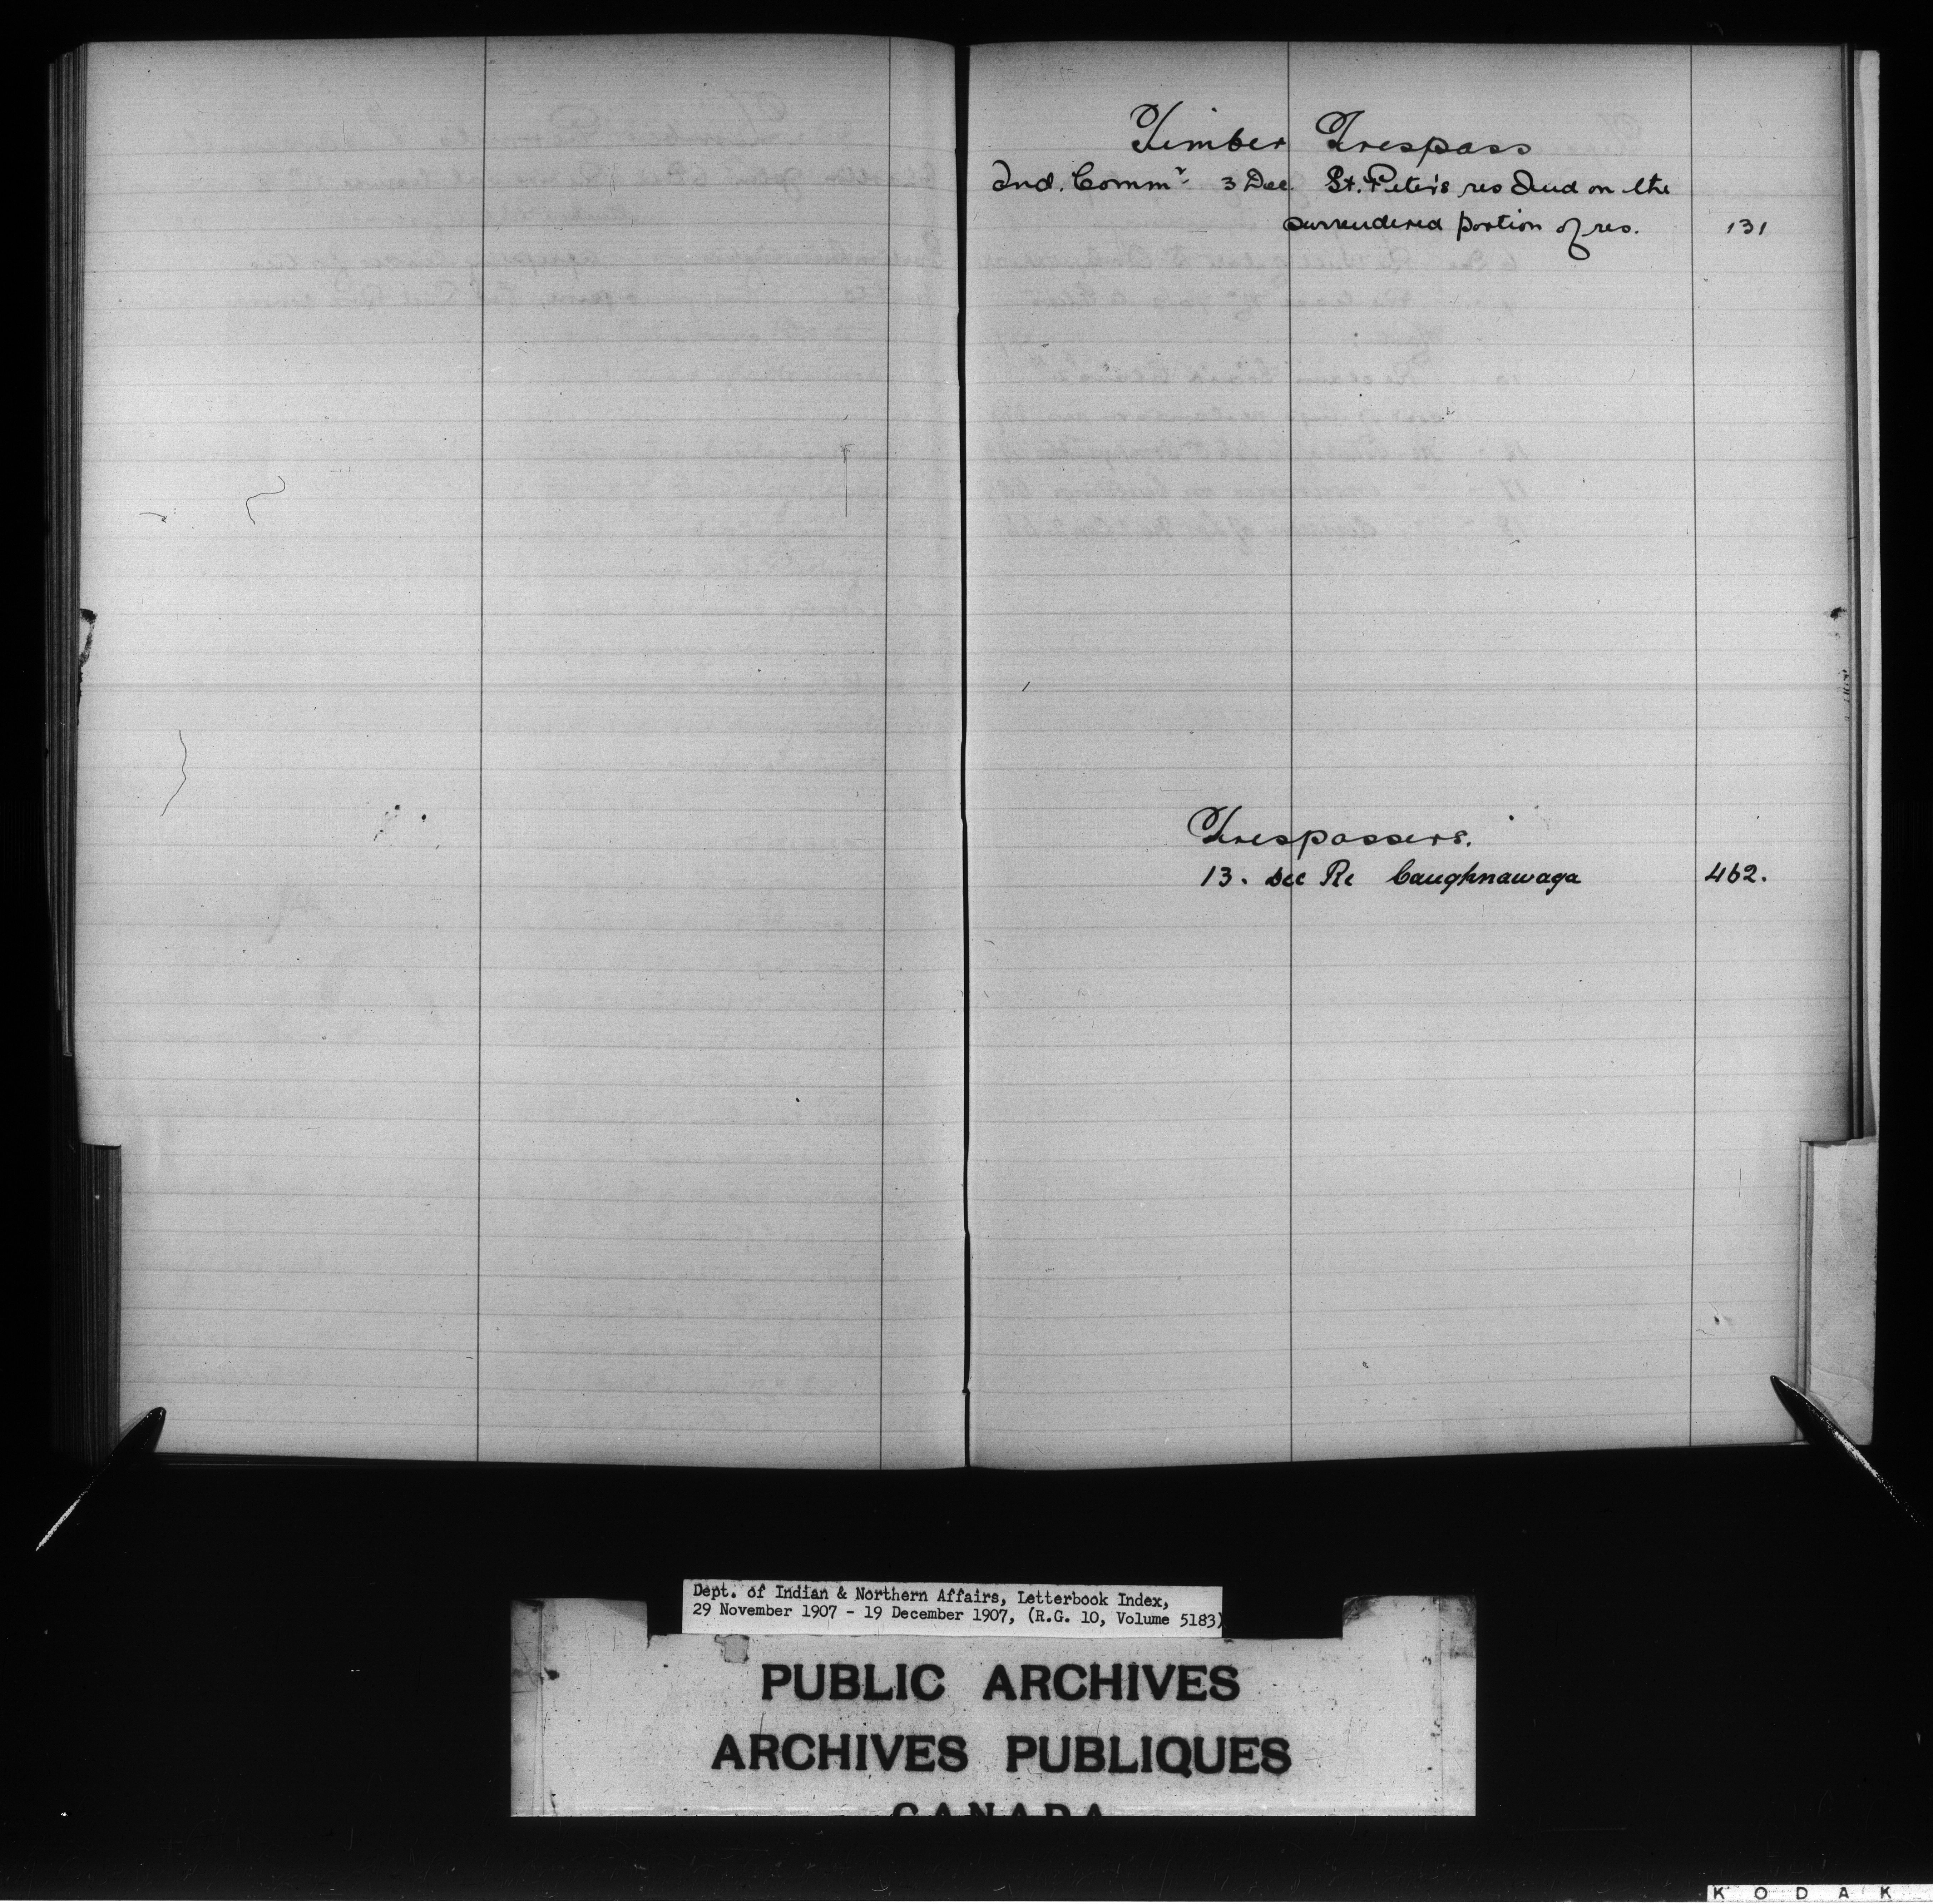 Timber Trespass
Ind. Commr. 3 Dec. St. Peter's res and on the
surrendered portion of res. 131
Trespassers.
13. Dec Re Caughnawaga 462.
Dept. of Indian & Northern Affairs, Letterbook Index,
29 November 1907 - 19 December 1907, (R.G. 10, Volume 5183)
PUBLIC ARCHIVES
ARCHIVES PUBLIQUES
CANADA
KODAK